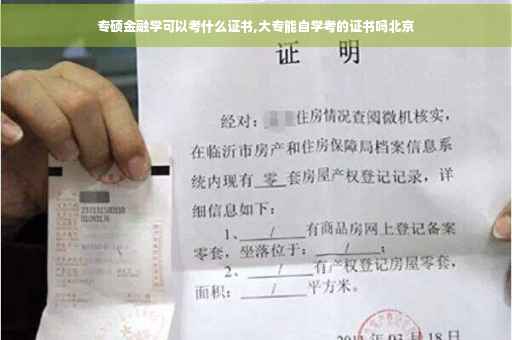 专硕金融学可以考什么证书,大专能自学考的证书吗北京
证 明
经对:住房情况查阅微机核实,
在临沂市房产和住房保障局档案信息系
统内现有 零 套房屋产权登记记录,详
细信息如下:
1、 / 有商品房网上登记备案
零套,坐落位于: / ;
2、 / 有产权登记房屋零套,
面积: / 平方米。
03月18日